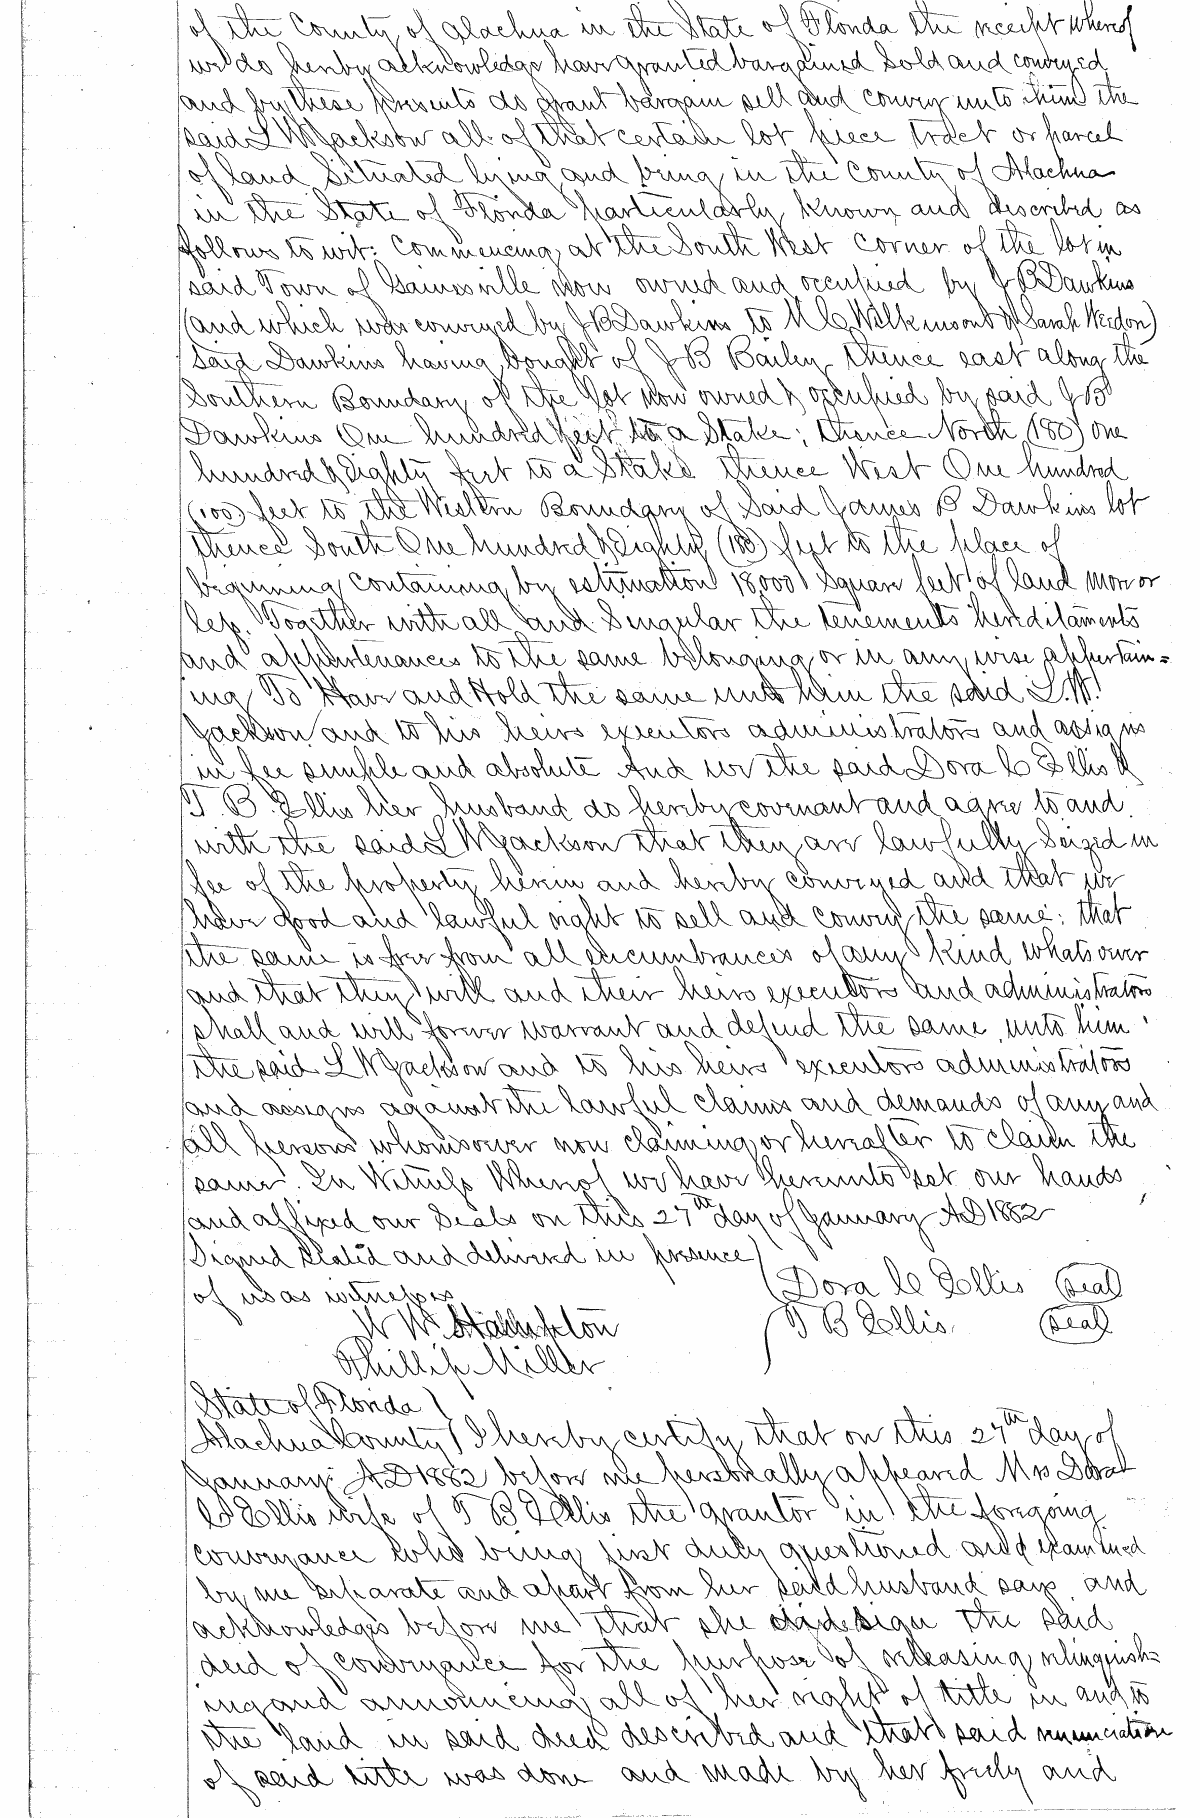 of the County of Alachua in the State of Florida the receipt whereof
we do hereby acknowledge have granted bargained Sold and conveyed
and by these presents do grant bargain sell and convey unto him the
said L W Jackson all of that certain lot piece tract or parcel
of land Situated lying and being in the County of Alachua
in the State of Florida particularly known and described as
follows to wit: Commencing at the South West corner of the lot in
said Town of Gainesville now owned and occupied by J B Dawkins
(and which was conveyed by J B Dawkins to M C Wilkinson & Sarah Weedon)
said Dawkins having bought of J B Bailey thence east along the
Southern Boundary of the lot now owned & occupied by said J B
Dawkins One hundred feet to a Stake; thence North (180) one
hundred & Eighty feet to a Stake thence West One hundred
(100) feet to the Western Boundary of Said James B Dawkins lot
thence South One hundred & Eighty (180) feet to the place of
beginning containing by estimation 18,000 Square feet of land more or
less. Together with all and Singular the tenements hereditaments
and appurtenances to the same belonging or in any wise appertain=
ing To Have and Hold the same unto him the said L. W.
Jackson and to his heirs executors administrators and assigns
in fee simple and absolute And we the said Dora C Ellis &
T. B. Ellis her husband do hereby covenant and agree to and
with the said L W Jackson that they are lawfully Seized in
fee of the property herein and hereby conveyed and that we
have good and lawful right to sell and convey the same: that
the same is free from all encumbrances of any kind whatsoever
and that they will and their heirs executors and administrators
shall and will forever warrant and defend the same unto him
the said L W Jackson and to his heirs executors administrators
and assigns against the lawful claims and demands of any and
all persons whomsoever now claiming or hereafter to claim the
same. In Witness Whereof we have hereunto set our hands
and affixed our Seals on this 27th day of January A D 1882
Signed Sealed and delivered in presence
of us as witnesses
Dora C Ellis (Seal)
W W Hampton
T B Ellis (Seal)
Phillip Miller
State of Florida
Alachua County I hereby certify that on this 27th day of
January A D 1882 before me personally appeared Mrs Dora
C Ellis wife of T B Ellis the grantor in the foregoing
conveyance who being first duly questioned and examined
by me separate and apart from her said husband says and
acknowledges before me that she did sign the said
deed of conveyance for the purpose of releasing relinquish=
ing and announcing all of her right of title in and to
the land in said deed described and that said renunciation
of said title was done and made by her freely and